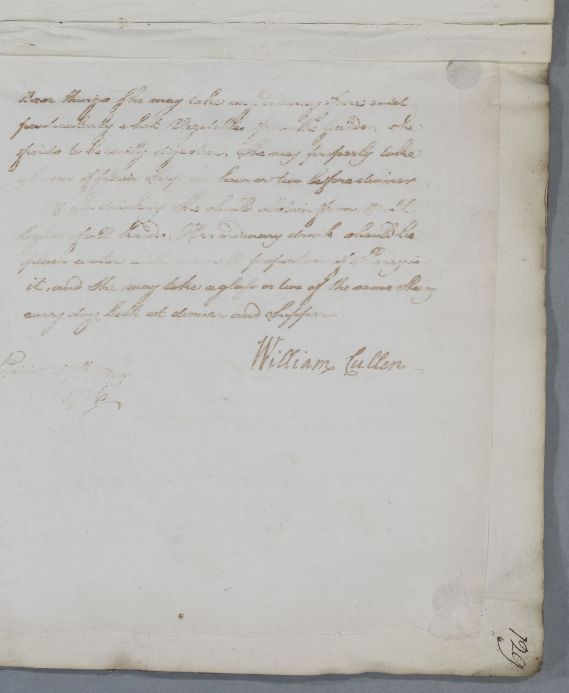 things she may take in ordinary fare and
particularly what Vegetables from the Garden she
finds to be easily digested. She may properly take
a hour or two before dinner
8 In drinking she should abstain from Malt
liquor of all kinds. Her ordinary drink should be
water with a small proportion of Sherry in
it, and she may take a glass or two of the same Sherry
every day both at dinner and Supper.
William Cullen
17th May
129